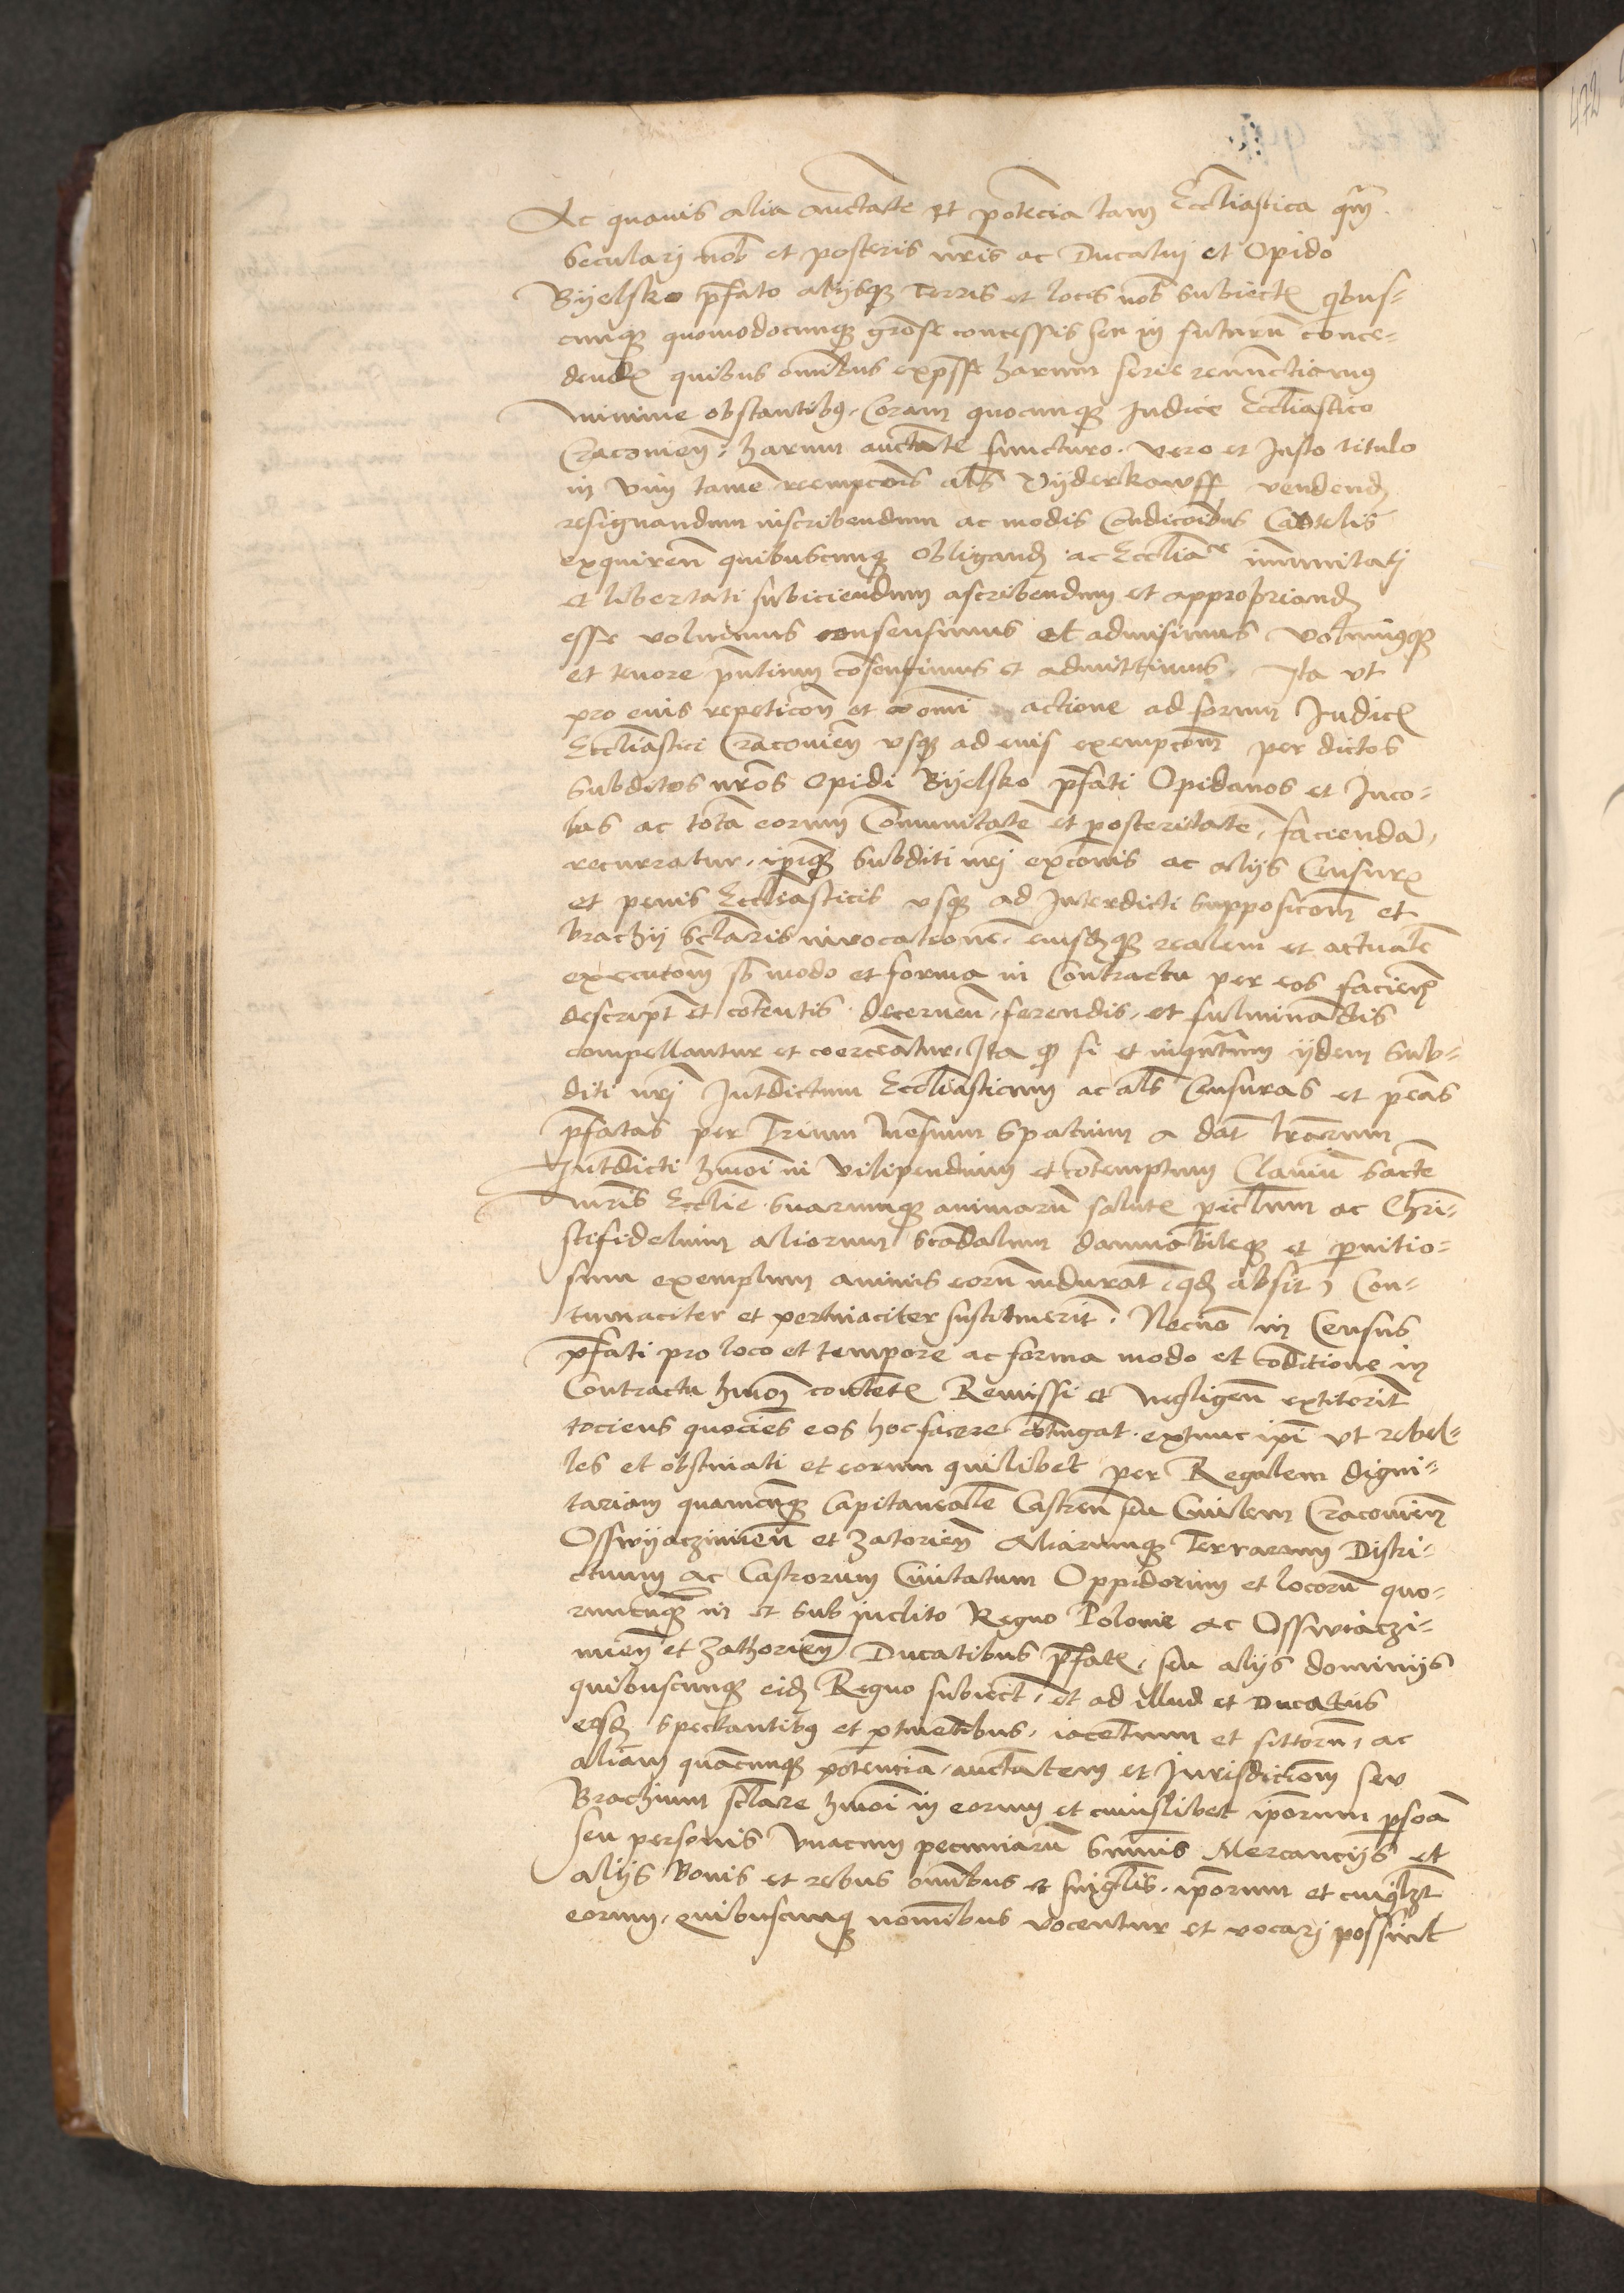 Ac quavis alia auctate et potecia tam Eccliastica qm
seculari nob et posteris nris ac Ducatui et Opido
Byelsko pfato alysq Terris et locis nob subiect qbus=
cunq quomodocunq gnose concessis seu in futuru conce=
dend quibus omibus expsse harum serie renunctiamus
minime obstantibus. Coram quocunq Judice Eccliastico
Cracouien, harum auctate functuro. vero et Justo titulo
in vim tame reempcois als Wyderkawff vendend
resignandum inscribendum ac modis Condicoibus Cautelis
exquiren quibuscunq obligand ac Eccliace immunitatj
et libertati subiciendum ascribendum et appropriand
esse voluimus consensimus et admisimus volumusq
et tenore pntium cosentimus et admittimus. Ita vt
pro euis repeticon et omi actione ad forum Judic
Eccliastici Cracouien vsq ad euis exempcom per dictos
Subditos nros Opidi Byelsko pfati Opidanos et Inco=
las ac tota eorum Comunitate et posteritate, facienda,
recurratur, ipiq Subditi nrj excois ac alys Censur
et penis Eccleasticis vsq ad Interdicti supposicom et
brachij sclaris invocatione, eiusdq realem et actuale
executom sb modo et forma in Contractu per eos facien
descript et cotentis decernen, ferendis, et fulminadis
compellantur et coerceatur, Ita q si et inquntum ijdem Sub=
diti nrj Intdictum Eccliasticum ac als Censuras et penas
pfatas per Trium Mesium Spatium a dat lrarum
Intdicti hmoi in vilipendium et cotemptum Clauiu sacte
mris Ecclie. suarumq animaru salut piclum ac Chri=
stifidelium aliorum scadalum damnabileq et pnitio=
sum exemplum animis eoru indurat (qd absit) Con=
tumaciter et pertinaciter sustinuerit. Necno in Census
pfati pro loco et tempore ac forma modo et coditione in
Contractu hmoi content Remissi et negligen extiterit
tociens quociens eos hoc facere cotingat. extunc ipi vt rebel=
les et obstinati et eorum quilibet per Regalem digni=
tariam quamcunq Capitaneale Castren seu Ciuilem Cracouien
Osswyaczimien et Zatorien Aliarumq Terrarum Distri=
ctuum ac Castrorum Ciuitatum Oppidorum et locoru quo=
rumcunq in et sub inclito Regno Polonie ac Osswiaczi=
mien et Zathorien Ducatibus pfat, seu alijs dominijs
quibuscunq eid Regno subiect, et ad illud et Ducatus
eosd spectantibus et ptinetibus, iacetium et sittoru, ac
aliam quacunq potencia, auctatem et Jurisdiciom seu
Brachium sclare hmoi in eorum et cuiuslibet iporum psoa
seu personis vnacum pecuniaru summis Mercancijs et
alijs bonis et rebus omibus et singlis. iporum et cuiuslzt
eorum, quibuscunq nomibus vocentur et vocarj possint